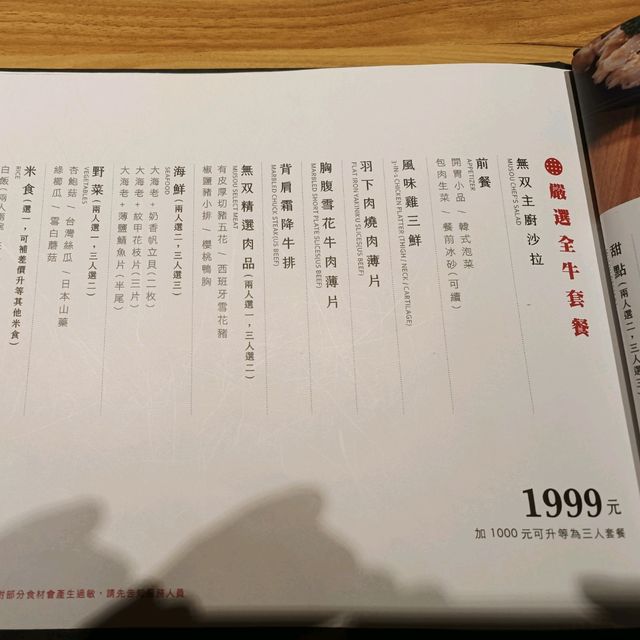 嚴選全牛套餐
無双主廚沙拉
MUSOU CHEF'S SALAD
前餐
APPETIZER
開胃小品 / 韓式泡菜
包肉生菜 / 餐前冰砂(可續)
風味雞三鮮
3-IN-1 CHICKEN PLATTER (THIGH / NECK / CARTILAGE)
羽下肉燒肉薄片
FLAT IRON YAKINIKU SLICES(US BEEF)
胸腹雪花牛肉薄片
MARBLED SHORT PLATE SLICES(US BEEF)
背肩霜降牛排
MARBLED CHUCK STEAK(US BEEF)
無双精選肉品(兩人選一,三人選二)
MUSOU SELECT MEAT
有皮厚切豬五花 / 西班牙雪花豬
椒鹽豬小排 / 櫻桃鴨胸
海鮮(兩人選二,三人選三)
SEAFOOD
大海老+奶香帆立貝(二枚)
大海老+紋甲花枝片(三片)
大海老+薄鹽鯖魚片(半尾)
野菜(兩人選一,三人選二)
VEGETABLES
杏鮑菇 / 台灣絲瓜 / 日本山藥
綠櫛瓜 / 雪白蘑菇
米食(選一,可補差價升等其他米食)
RICE
1999元
加1000元可升等為三人套餐
甜點(兩人選二,三人選三
部分食材會產生過敏,請先告知服務人員